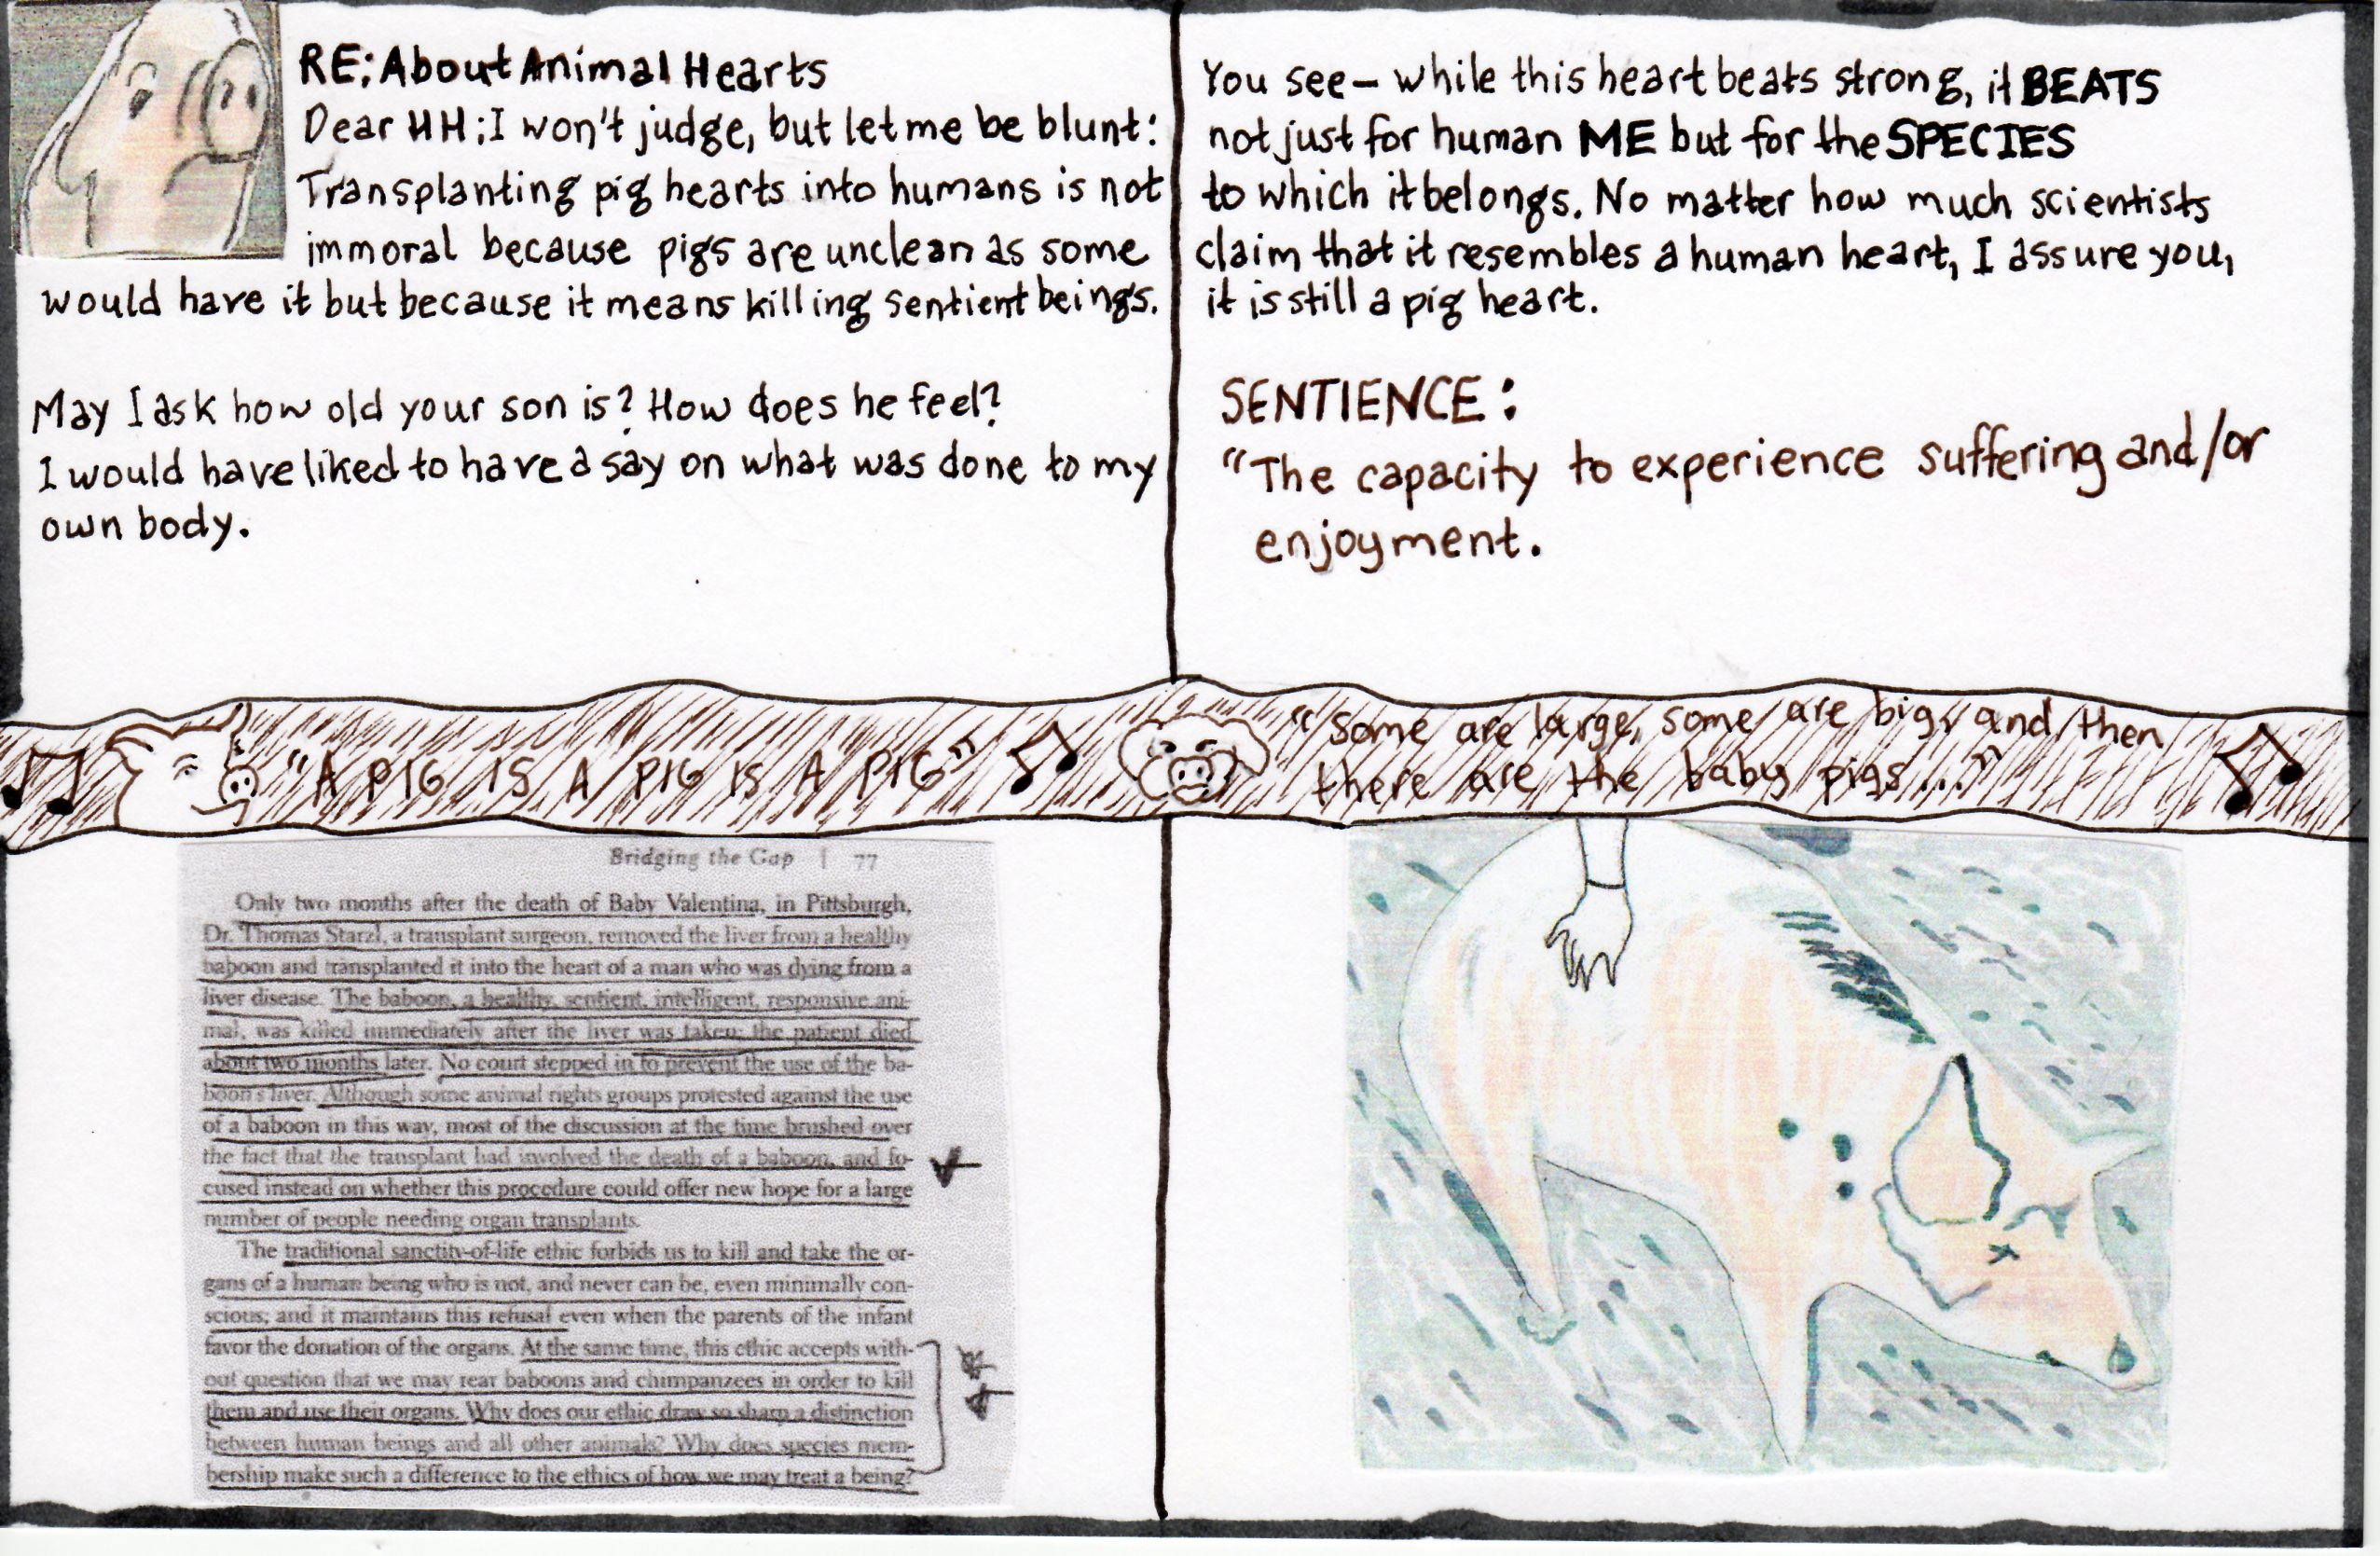 RE: About Animal Hearts
Dear HH; I won't judge, but let me be blunt:
Transplanting pig hearts into humans is not
immoral because pigs are unclean as some
would have it but because it means killing sentient beings.
May I ask how old your son is? How does he feel?
I would have liked to have a say on what was done to my
own body.
You see— while this heart beats strong, it BEATS
not just for human ME but for the SPECIES
to which it belongs. No matter how much scientists
claim that it resembles a human heart, I assure you,
it is still a pig heart.
SENTIENCE:
"The capacity to experience suffering and/or
enjoyment.
"A PIG IS A PIG IS A PIG"
"Some are large, some are big, and then
there are the baby pigs..."
Bridging the Gap | 77
Only two months after the death of Baby Valentina, in Pittsburgh,
Dr. Thomas Starzl, a transplant surgeon, removed the liver from a healthy
baboon and transplanted it into the heart of a man who was dying from a
liver disease. The baboon, a healthy, sentient, intelligent, responsive ani-
mal, was killed immediately after the liver was taken; the patient died
about two months later. No court stepped in to prevent the use of the ba-
boon's liver. Although some animal rights groups protested against the use
of a baboon in this way, most of the discussion at the time brushed over
the fact that the transplant had involved the death of a baboon, and fo-
cused instead on whether this procedure could offer new hope for a large
number of people needing organ transplants.
The traditional sanctity-of-life ethic forbids us to kill and take the or-
gans of a human being who is not, and never can be, even minimally con-
scious; and it maintains this refusal even when the parents of the infant
favor the donation of the organs. At the same time, this ethic accepts with-
out question that we may rear baboons and chimpanzees in order to kill
them and use their organs. Why does our ethic draw so sharp a distinction
between human beings and all other animals? Why does species mem-
bership make such a difference to the ethics of how we may treat a being?